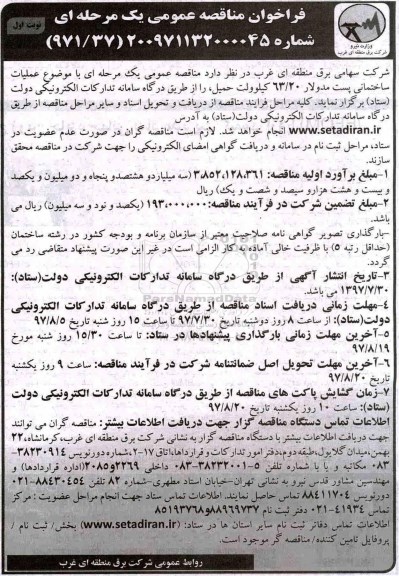 فراخوان مناقصه عمومی یک مرحله ای
نوبت اول
شماره ۲۰۰۹۷۱۱۳۲۰۰۰۰۴۵ (۹۷۱/۳۷)
وزارت نیرو
شرکت برق منطقه ای غرب
شرکت سهامی برق منطقه ای غرب در نظر دارد مناقصه عمومی یک مرحله ای با موضوع عملیات
ساختمانی پست مدولار ۶۳/۲۰ کیلوولت حمیل، را از طریق درگاه سامانه تدارکات الکترونیکی دولت
(ستاد) برگزار نماید. کلیه مراحل فرایند مناقصه از دریافت و تحویل اسناد و سایر مراحل مناقصه از طریق
درگاه سامانه تدارکات الکترونیکی دولت(ستاد) به آدرس
www.setadiran.ir انجام خواهد شد. لازم است مناقصه گران در صورت عدم عضویت در
ستاد، مراحل ثبت نام در سامانه و دریافت گواهی امضای الکترونیکی را جهت شرکت در مناقصه محقق
سازند.
۱-مبلغ برآورد اولیه مناقصه: ۳،۸۵۲،۱۲۸،۳۶۱ (سه میلیارد و هشتصد و پنجاه و دو میلیون و یکصد
و بیست و هشت هزار و سیصد و شصت و یک) ریال
۲-مبلغ تضمین شرکت در فرآیند مناقصه: ۱۹۳،۰۰۰،۰۰۰ (یکصد و نود و سه میلیون) ریال می
باشد.
-بارگذاری تصویر گواهی نامه صلاحیت معتبر از سازمان برنامه و بودجه کشور در رشته ساختمان
(حداقل رتبه ۵) با ظرفیت خالی آماده به کار الزامی است در غیر این صورت پیشنهاد متقاضی رد می
گردد.
۳-تاریخ انتشار آگهی از طریق درگاه سامانه تدارکات الکترونیکی دولت(ستاد):
۱۳۹۷/۷/۳۰ می باشد.
۴-مهلت زمانی دریافت اسناد مناقصه از طریق درگاه سامانه تدارکات الکترونیکی
دولت(ستاد): از ساعت ۸ روز دوشنبه تاریخ ۹۷/۷/۳۰ تا ساعت ۱۵ روز شنبه تاریخ ۹۷/۸/۵
۵-آخرین مهلت زمانی بارگذاری پیشنهادها در ستاد: تا ساعت ۱۵/۳۰ روز شنبه مورخ
۹۷/۸/۱۹
۶-آخرین مهلت تحویل اصل ضمانتنامه شرکت در فرآیند مناقصه: ساعت ۹ روز یکشنبه
تاریخ ۹۷/۸/۲۰
۷-زمان گشایش پاکت های مناقصه از طریق درگاه سامانه تدارکات الکترونیکی دولت
(ستاد): ساعت ۱۰ روز یکشنبه تاریخ ۹۷/۸/۲۰
اطلاعات تماس دستگاه مناقصه گزار جهت دریافت اطلاعات بیشتر: مناقصه گران می توانند
جهت دریافت اطلاعات بیشتر با دستگاه مناقصه گزار به نشانی شرکت برق منطقه ای غرب، کرمانشاه، ۲۲
بهمن، میدان گلایول، طبقه دوم، دفتر امور تدارکات و قراردادها، اتاق ۱۷-۲، شماره دورنویس ۳۸۲۳۰۹۱۴-
۰۸۳ مکاتبه و یا با شماره تلفن ۵-۳۸۲۳۲۰۰۱-۰۸۳ داخلی ۲۲۶۹و۲۰۸۵ (اداره قراردادها) و
مهندسین مشاور قدس نیرو به نشانی تهران-خیابان استاد مطهری-شماره ۸۲ تلفن ۸۸۴۳۰۴۵۴-۰۲۱
دورنویس ۸۸۴۱۱۷۰۴ تماس حاصل نمایند. اطلاعات تماس ستاد جهت انجام مراحل عضویت: مرکز
تماس ۴۱۹۳۴-۰۲۱ دفتر ثبت نام ۸۸۹۶۹۷۳۷ و ۸۵۱۹۳۷۶۸
اطلاعات تماس دفاتر ثبت نام سایر استان ها در ستاد: (www.setadiran.ir) بخش/ ثبت نام /
پروفایل تامین کننده/ مناقصه گر موجود است.
روابط عمومی شرکت برق منطقه ای غرب